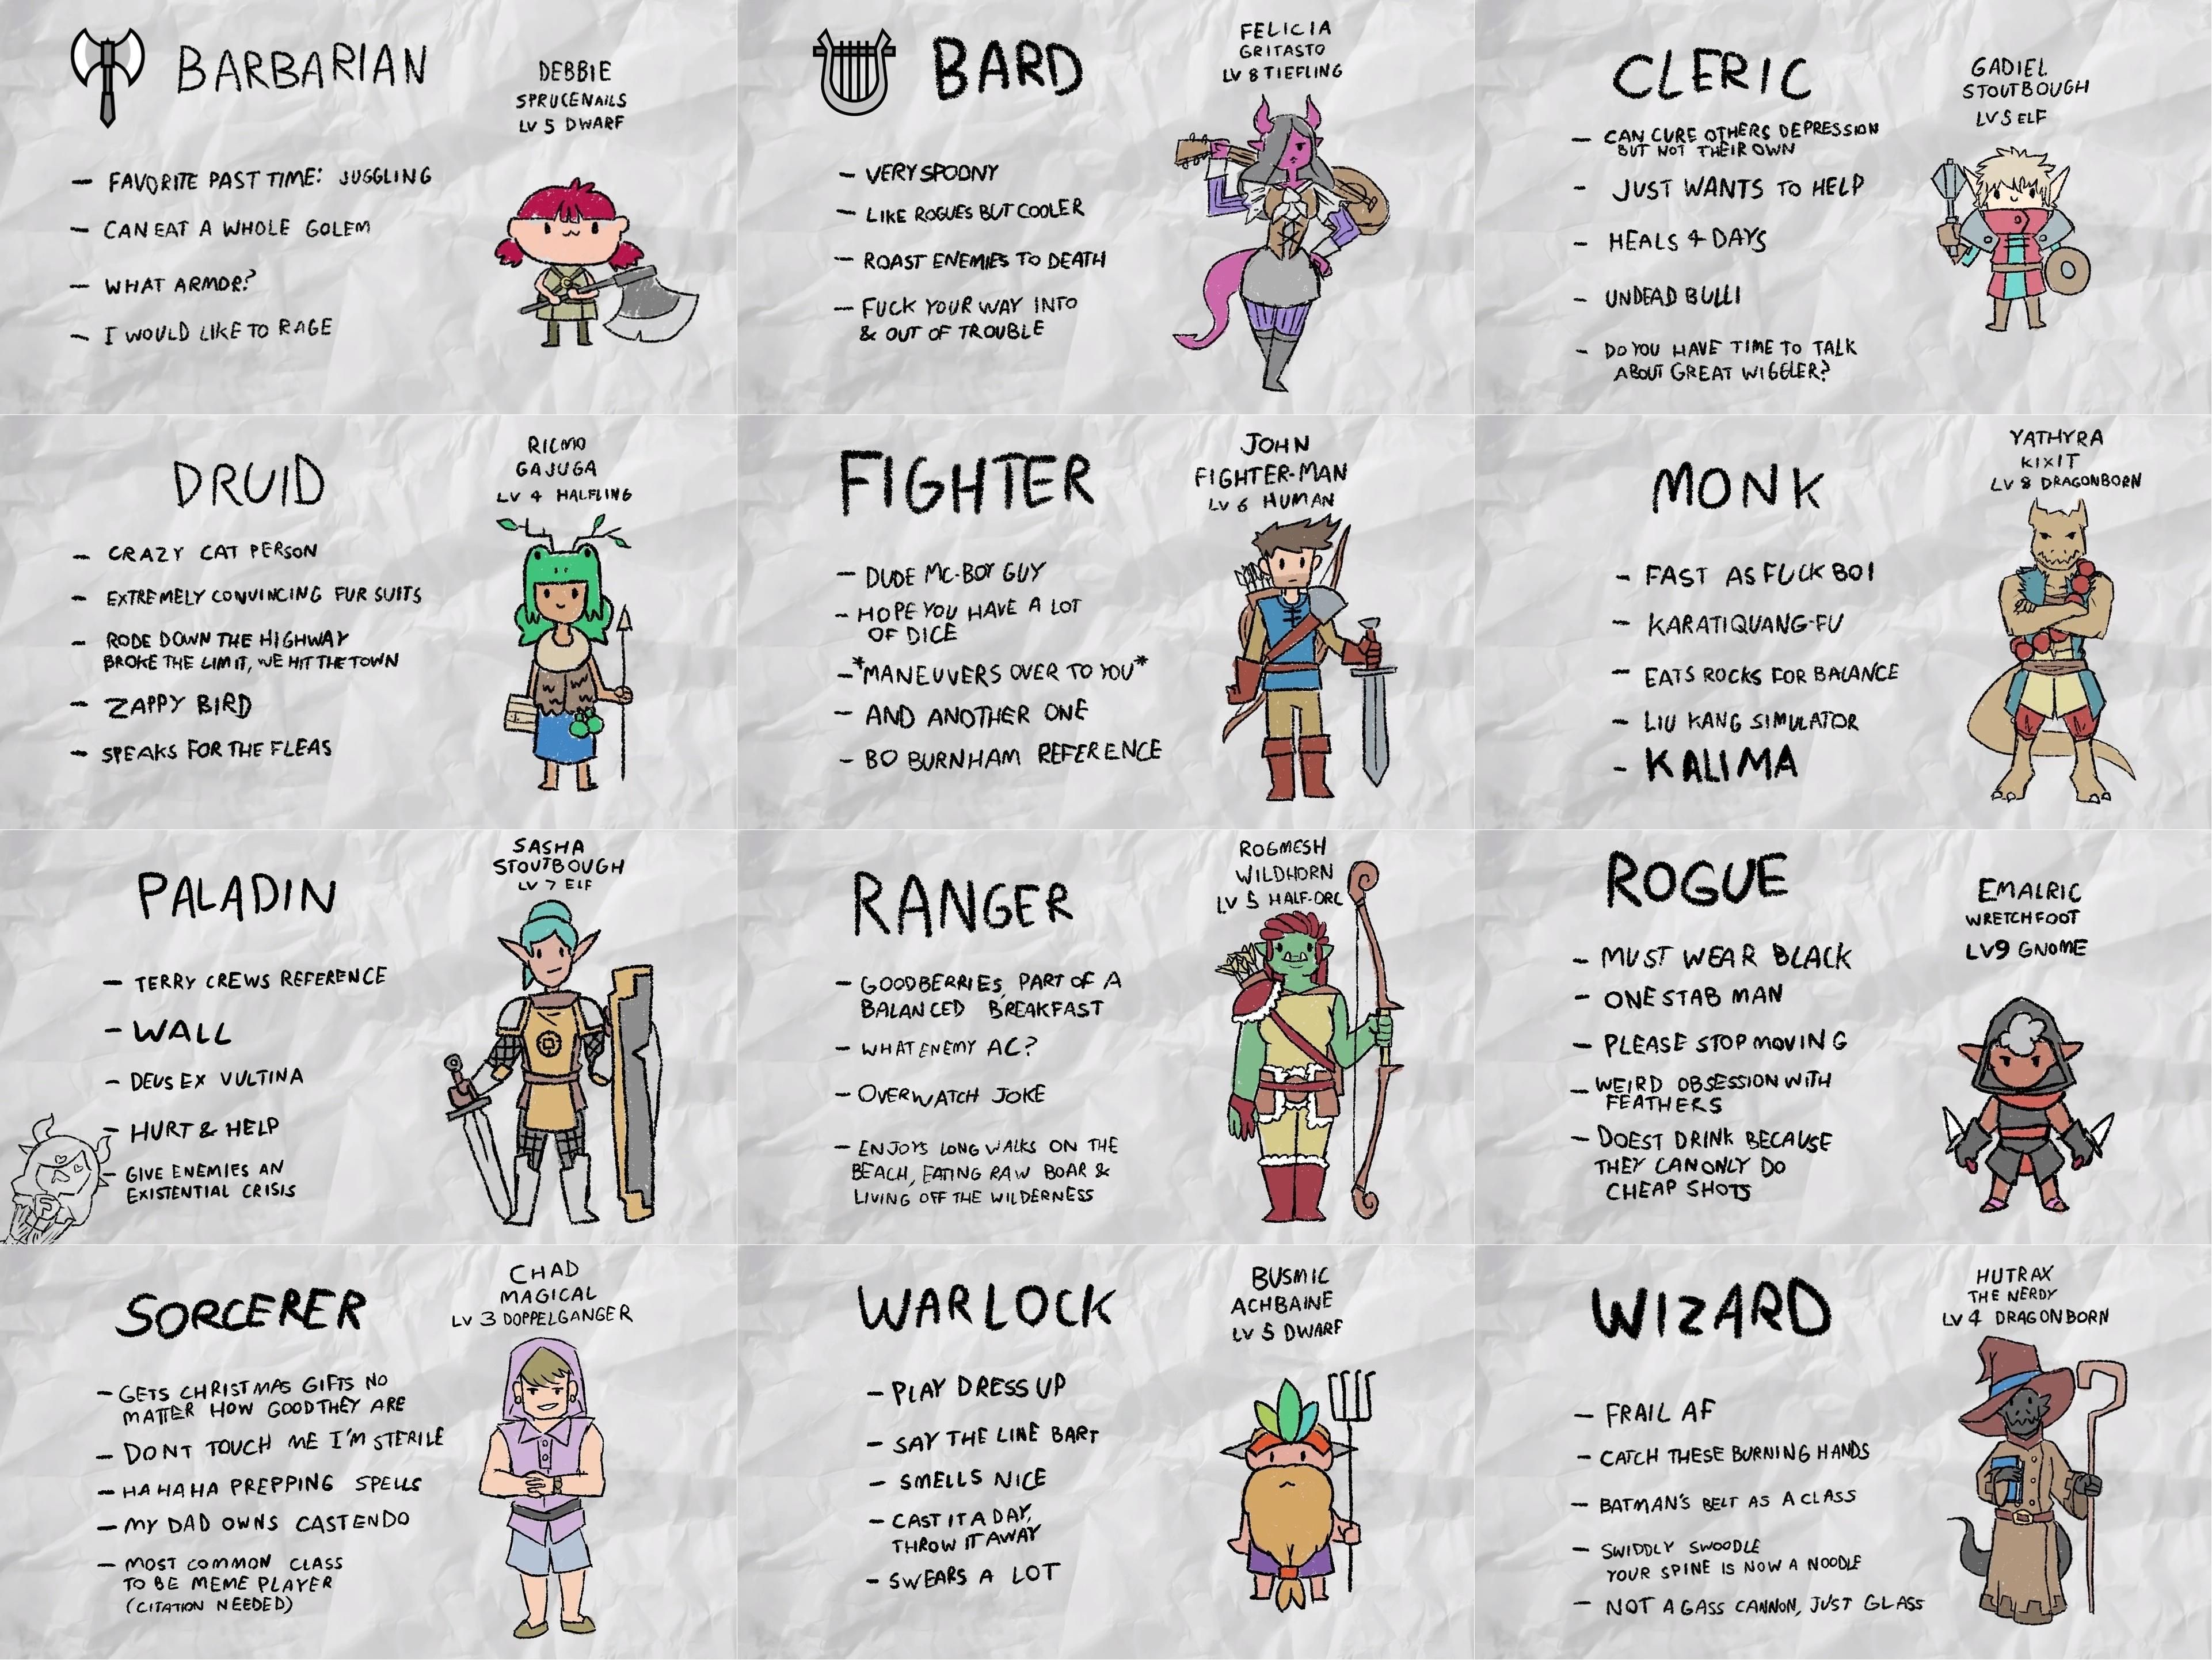 BARBARIAN
DEBBIE
SPRUCENAILS
LV 5 DWARF
- FAVORITE PAST TIME: JUGGLING
- CAN EAT A WHOLE GOLEM
- WHAT ARMOR?
- I WOULD LIKE TO RAGE
BARD
FELICIA
GRITASTO
LV 8 TIEFLING
- VERY SPOONY
- LIKE ROGUES BUT COOLER
- ROAST ENEMIES TO DEATH
- FUCK YOUR WAY INTO
& OUT OF TROUBLE
CLERIC
GADIEL
STOUTBOUGH
LV 5 ELF
- CAN CURE OTHERS DEPRESSION
BUT NOT THEIR OWN
- JUST WANTS TO HELP
- HEALS 4 DAYS
- UNDEAD BULLI
- DO YOU HAVE TIME TO TALK
ABOUT GREAT WIGGLER?
DRUID
RICMO
GAJUGA
LV 4 HALFLING
- CRAZY CAT PERSON
- EXTREMELY CONVINCING FUR SUITS
- RODE DOWN THE HIGHWAY
BROKE THE LIMIT, WE HIT THE TOWN
- ZAPPY BIRD
- SPEAKS FOR THE FLEAS
FIGHTER
JOHN
FIGHTER-MAN
LV 6 HUMAN
- DUDE MC-BOY GUY
- HOPE YOU HAVE A LOT
OF DICE
- *MANEUVERS OVER TO YOU*
- AND ANOTHER ONE
- BO BURNHAM REFERENCE
MONK
YATHYRA
KIXIT
LV 8 DRAGONBORN
- FAST AS FUCK BOI
- KARATIQUANG-FU
- EATS ROCKS FOR BALANCE
- LIU KANG SIMULATOR
- KALIMA
PALADIN
SASHA
STOUTBOUGH
LV 7 ELF
- TERRY CREWS REFERENCE
- WALL
- DEUS EX VULTINA
- HURT & HELP
- GIVE ENEMIES AN
EXISTENTIAL CRISIS
RANGER
ROGMESH
WILDHORN
LV 5 HALF-ORC
- GOODBERRIES, PART OF A
BALANCED BREAKFAST
- WHAT ENEMY AC?
- OVERWATCH JOKE
- ENJOYS LONG WALKS ON THE
BEACH, EATING RAW BOAR &
LIVING OFF THE WILDERNESS
ROGUE
EMALRIC
WRETCHFOOT
LV9 GNOME
- MUST WEAR BLACK
- ONE STAB MAN
- PLEASE STOP MOVING
- WEIRD OBSESSION WITH
FEATHERS
- DOEST DRINK BECAUSE
THEY CAN ONLY DO
CHEAP SHOTS
SORCERER
CHAD
MAGICAL
LV 3 DOPPELGANGER
- GETS CHRISTMAS GIFTS NO
MATTER HOW GOOD THEY ARE
- DONT TOUCH ME I'M STERILE
- HA HA HA PREPPING SPELLS
- MY DAD OWNS CASTENDO
- MOST COMMON CLASS
TO BE MEME PLAYER
(CITATION NEEDED)
WARLOCK
BUSMIC
ACHBAINE
LV 5 DWARF
- PLAY DRESS UP
- SAY THE LINE BART
- SMELLS NICE
- CAST IT A DAY,
THROW IT AWAY
- SWEARS A LOT
WIZARD
HUTRAX
THE NERDY
LV 4 DRAGONBORN
- FRAIL AF
- CATCH THESE BURNING HANDS
- BATMAN'S BELT AS A CLASS
- SWIDDLY SWOODLE
YOUR SPINE IS NOW A NOODLE
- NOT A GASS CANNON, JUST GLASS